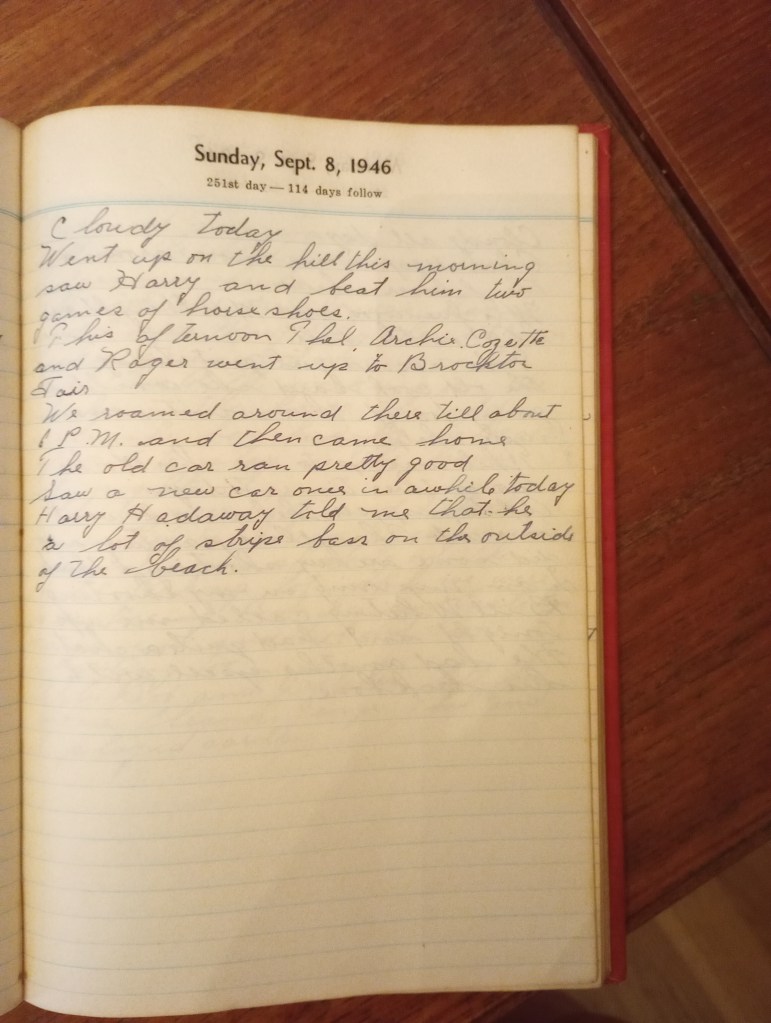 Sunday, Sept. 8, 1946
251st day — 114 days follow
Cloudy today
Went up on the hill this morning
saw Harry and beat him two
games of horse shoes.
This afternoon Phel, Archie, Cozette
and Roger went up to Brockton
Fair
We roamed around there till about
P.M. and then came home
The old car ran pretty good
Saw a new car once in awhile today
Harry Hadaway told me that he
a lot of stripe bass on the outside
of the beach.